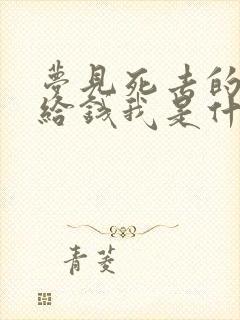 夢見死者的
給錢我是什
青菱